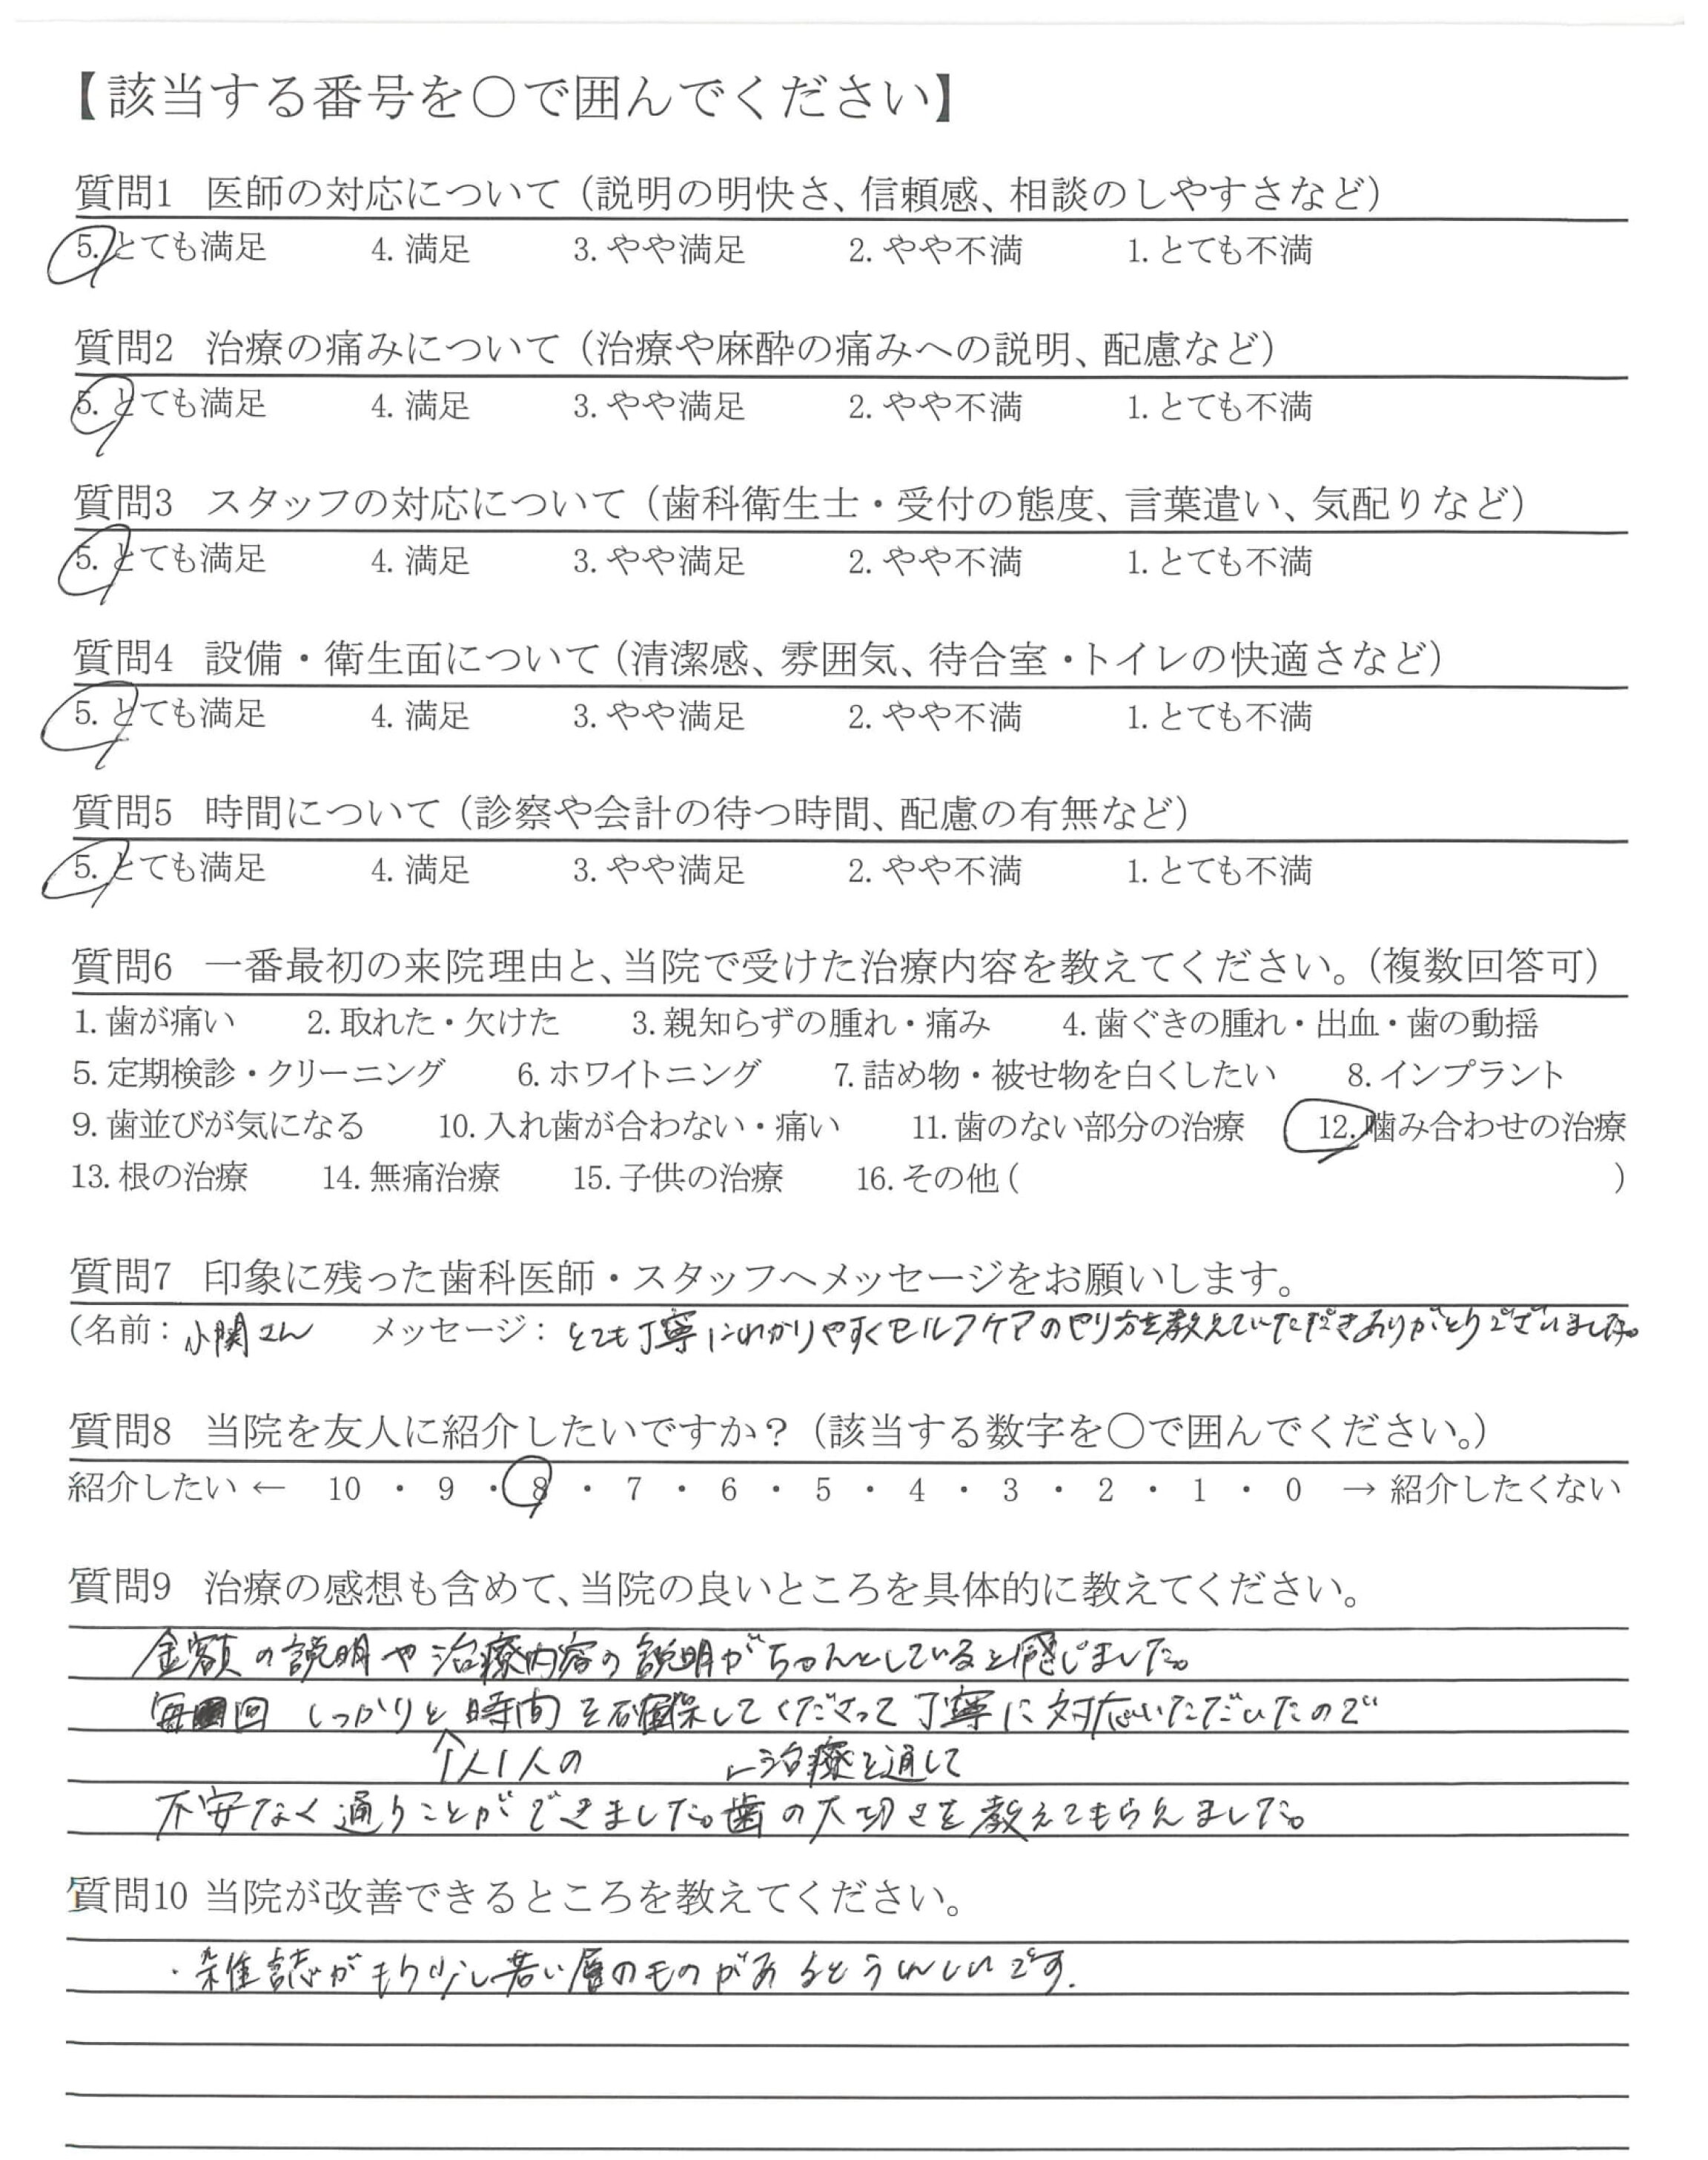 【該当する番号を〇で囲んでください】
質問1 医師の対応について（説明の明快さ、信頼感、相談のしやすさなど）
5. とても満足 4. 満足 3. やや満足 2. やや不満 1. とても不満
質問2 治療の痛みについて（治療や麻酔の痛みへの説明、配慮など）
5. とても満足 4. 満足 3. やや満足 2. やや不満 1. とても不満
質問3 スタッフの対応について（歯科衛生士・受付の態度、言葉遣い、気配りなど）
5. とても満足 4. 満足 3. やや満足 2. やや不満 1. とても不満
質問4 設備・衛生面について（清潔感、雰囲気、待合室・トイレの快適さなど）
5. とても満足 4. 満足 3. やや満足 2. やや不満 1. とても不満
質問5 時間について（診察や会計の待つ時間、配慮の有無など）
5. とても満足 4. 満足 3. やや満足 2. やや不満 1. とても不満
質問6 一番最初の来院理由と、当院で受けた治療内容を教えてください。（複数回答可）
1. 歯が痛い 2. 取れた・欠けた 3. 親知らずの腫れ・痛み 4. 歯ぐきの腫れ・出血・歯の動揺
5. 定期検診・クリーニング 6. ホワイトニング 7. 詰め物・被せ物を白くしたい 8. インプラント
9. 歯並びが気になる 10. 入れ歯が合わない・痛い 11. 歯のない部分の治療 12. 噛み合わせの治療
13. 根の治療 14. 無痛治療 15. 子供の治療 16. その他（ ）
質問7 印象に残った歯科医師・スタッフへメッセージをお願いします。
（名前：小関さん メッセージ：とても丁寧にわかりやすくセルフケアのやり方を教えていただきありがとうございました。
質問8 当院を友人に紹介したいですか？（該当する数字を〇で囲んでください。）
紹介したい ← 10 ・ 9 ・ 8 ・ 7 ・ 6 ・ 5 ・ 4 ・ 3 ・ 2 ・ 1 ・ 0 → 紹介したくない
質問9 治療の感想も含めて、当院の良いところを具体的に教えてください。
金額の説明や治療内容の説明がちゃんとしていると感じました。
毎回 しっかりと時間を確保してくださって丁寧に対応いただいたので
1人1人の 治療を通して
不安なく通うことができました。歯の大切さを教えてもらえました。
質問10 当院が改善できるところを教えてください。
・雑誌がもう少し若い層のものがあるとうれしいです.